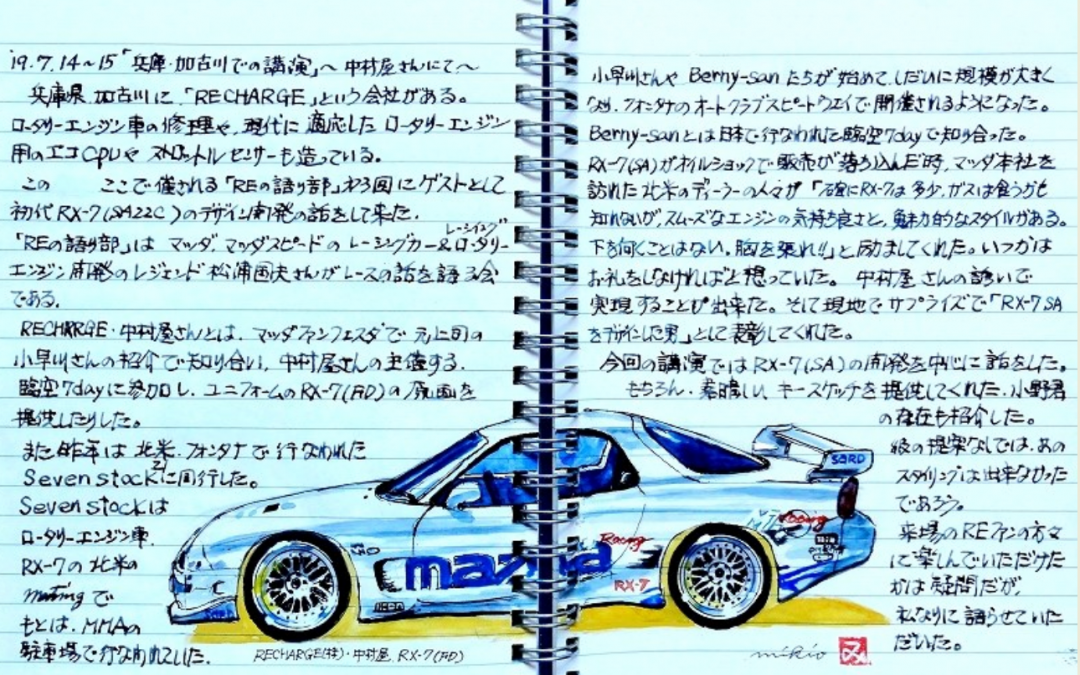 '19.7.14~15「兵庫・加古川での講演」~中村屋さんにて~
兵庫県、加古川に、「RECHARGE」という会社がある。
ロータリーエンジン車の修理や、現代に適応したロータリーエンジン
用のエコCPUや スロットルセンサーも造っている。
この ここで催される「REの語り部」第3回にゲストとして
初代RX-7(SA22C)のデザイン開発の話をして来た。
レーシング
「REの語り部」は マツダ、マツダスピードの レーシングカー&ロータリー
エンジン開発のレジェンド 松浦国夫さんがレースの話を語る会
である。
RECHARGE・中村屋さんとは、マツダファンフェスタで 元上司の
小早川さんの紹介で知り合い、中村屋さんの主催する、
臨空7dayに参加し、ユニフォームのRX-7(FD)の原画を
提供したりした。
また昨年は 北米、フォンタナで行なわれた
Seven stock 21に同行した。
Seven stockは
ロータリーエンジン車、
RX-7の北米の
meetingで
もとは、MMAの
駐車場で行なわれていた。
RECHARGE(株)・中村屋 RX-7(FD)
小早川さんや Berny-san たちが始めて、しだいに規模が大きく
なり、フォンタナのオートクラブスピードウエイで開催されるようになった。
Berny-sanとは日本で行なわれた臨空7dayで知り合った。
RX-7(SA)がオイルショックで販売が落ち込んだ時、マツダ本社を
訪れた北米のディーラーの人々が「確にRX-7は多少、ガスは食うかも
知れないが、スムーズなエンジンの気持ち良さと、魅力的なスタイルがある。
下を向くことはない、胸を張れ!!」と励ましてくれた。いつかは
お礼をしなければと想っていた。 中村屋さんの誘いで
実現することが出来た。そして現地でサプライズで「RX-7 SA
をデザインした男」として表彰してくれた。
今回の講演ではRX-7(SA)の開発を中心に話をした。
もちろん、素晴しい キースケッチを提供してくれた、小野君
の存在も紹介した。
彼の提案なしでは、あの
スタイリングは出来なかった
であろう。
来場のREファンの方々
に楽しんでいただけた
かは疑問だが、
私なりに語らせていた
だいた。
SARD
Racing
Racing
mazda
RX-7
mikio
み